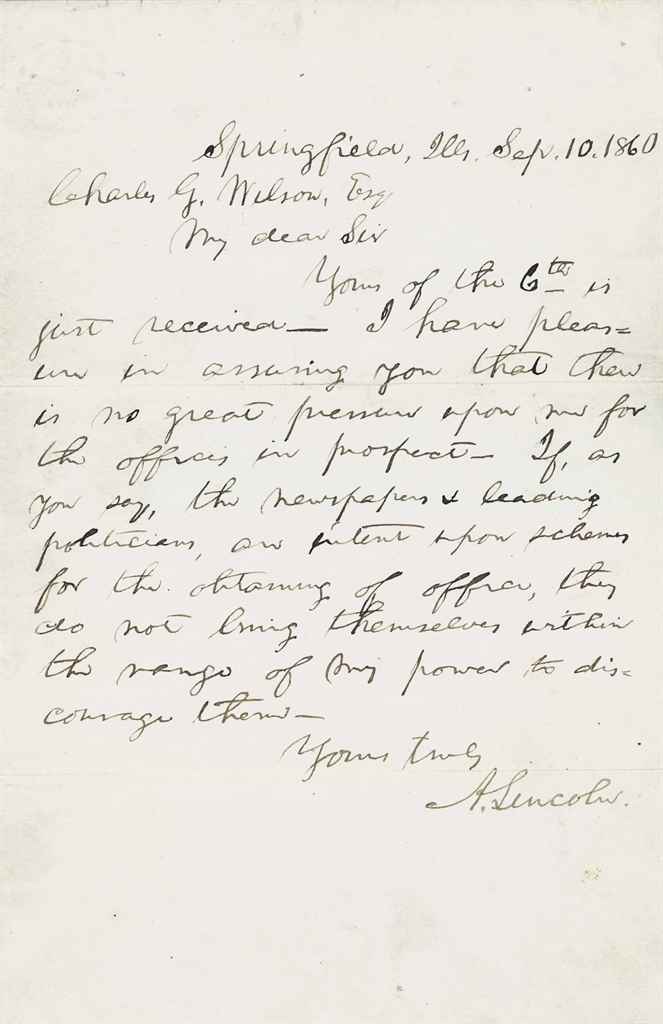 Springfield, Ills. Sep. 10. 1860
Charles G. Wilson, Esq
My dear Sir
Yours of the 6th is
just received— I have pleas=
ure in assuring you that there
is no great pressure upon me for
the offices in prospect— If, as
you say, the newspapers & leading
politicians, are intent upon schemes
for the obtaining of office, they
do not bring themselves within
the range of my power to dis=
courage them—
Yours truly
A. Lincoln.